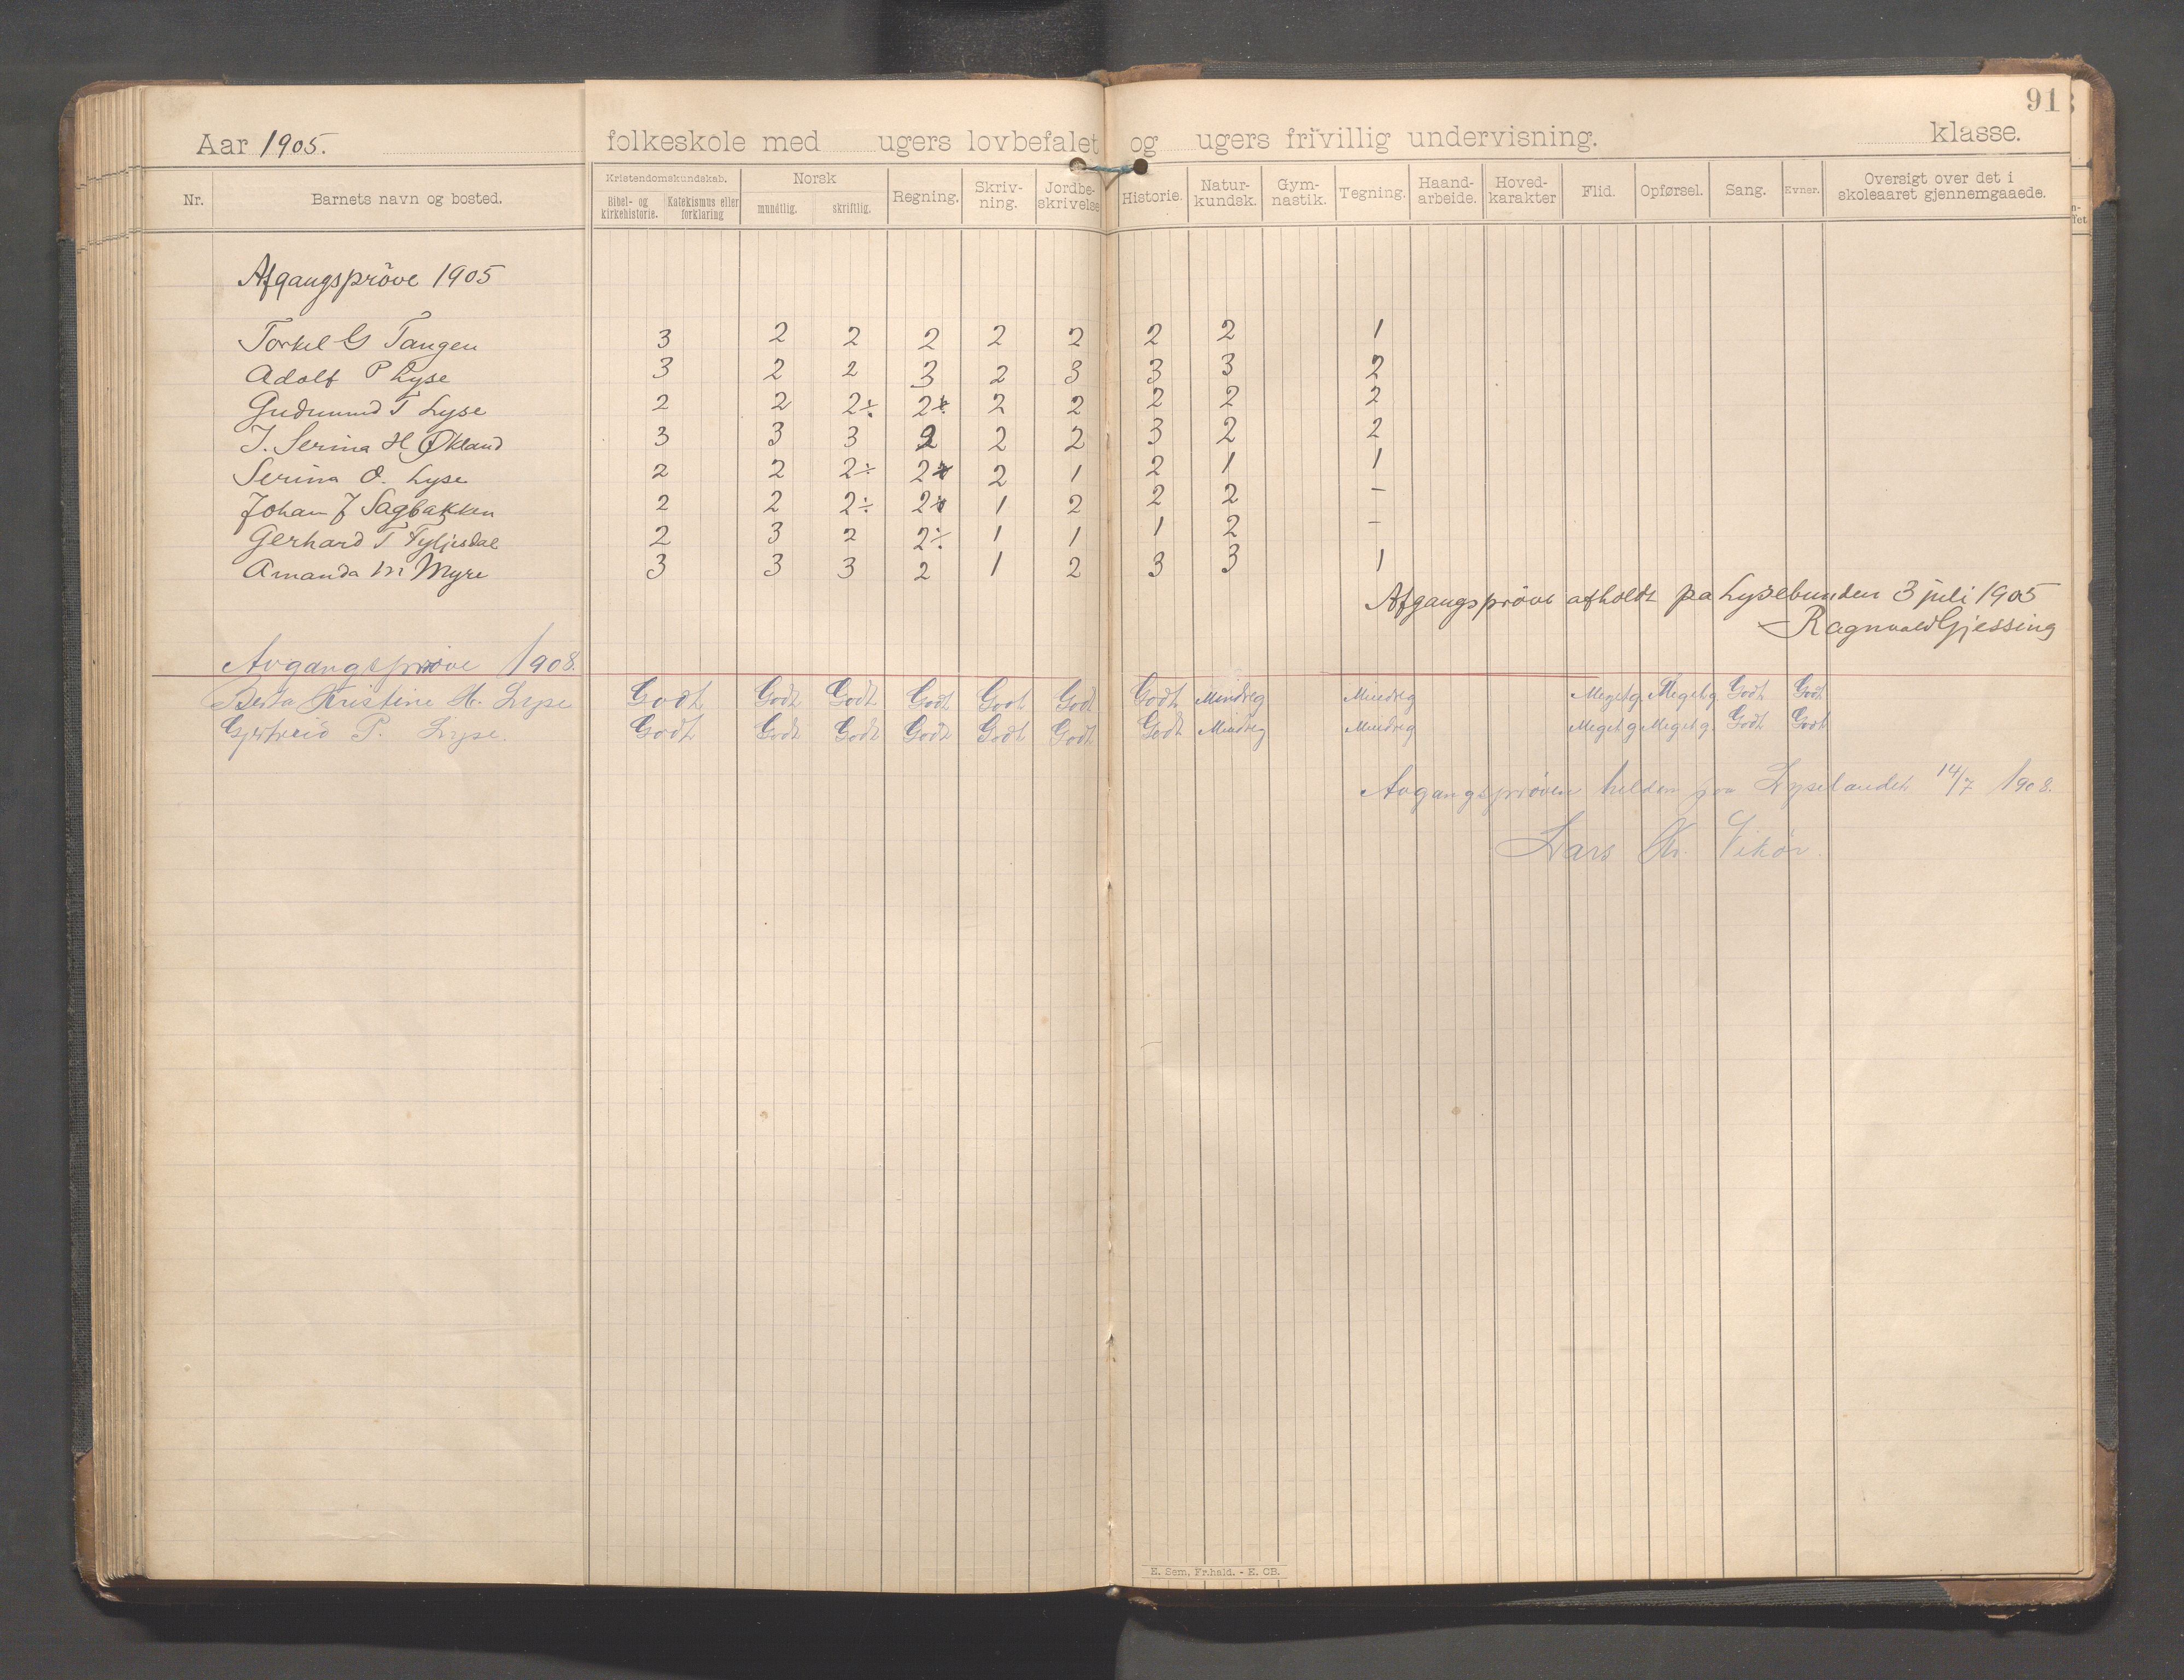 91
Aar 1905. folkeskole med ugers lovbefalet og ugers frivillig undervisning. klasse.
Nr. Barnets navn og bosted. Kristendomskundskab. Bibel- og kirkehistorie. Katekismus eller forklaring Norsk mundtlig. skriftlig. Regning. Skriv-ning. Jordbe-skrivelse Historie. Natur-kundsk. Gym-nastik. Tegning. Haand-arbeide. Hoved-karakter Flid. Opførsel. Sang. Evner. Oversigt over det i skoleaaret gjennemgaaede.
Afgangspröve 1905
Torkel G Tangen 3 2 2 2 2 2 2 2 1
Adolf P Lyse 3 2 2 3 2 3 3 3 2
Gudmund T Lyse 2 2 2÷ 2÷ 2 2 2 2 2
J. Serina H. Økland 3 3 3 2 2 2 3 2 2
Serina O. Lyse 2 2 2÷ 2÷ 2 1 2 1 1
Johan J Sagbakken 2 2 2÷ 2÷ 1 2 2 2 –
Gerhard T Fyljesdal 2 3 2 2÷ 1 1 1 2 –
Amanda M Myre 3 3 3 2 1 2 3 3 1
Afgangsprøve afholdt pa Lysebunden 3 juli 1905
Ragnvald Gjessing
Avgangsprøve 1908.
Berta Kristine H. Lyse Godt Godt Godt Godt Godt Godt Godt Mindreg Mindreg Meget g. Meget g. Godt Godt
P. Lyse. Godt Godt Godt Godt Godt Godt Godt Mindreg Mindreg Meget g. Meget g. Godt Godt
Avgangsprøven helden paa Lyselandet 14/7 1908.
Lars Kr. Vikør.
E. Sem, Fr.hald. - E. CB.